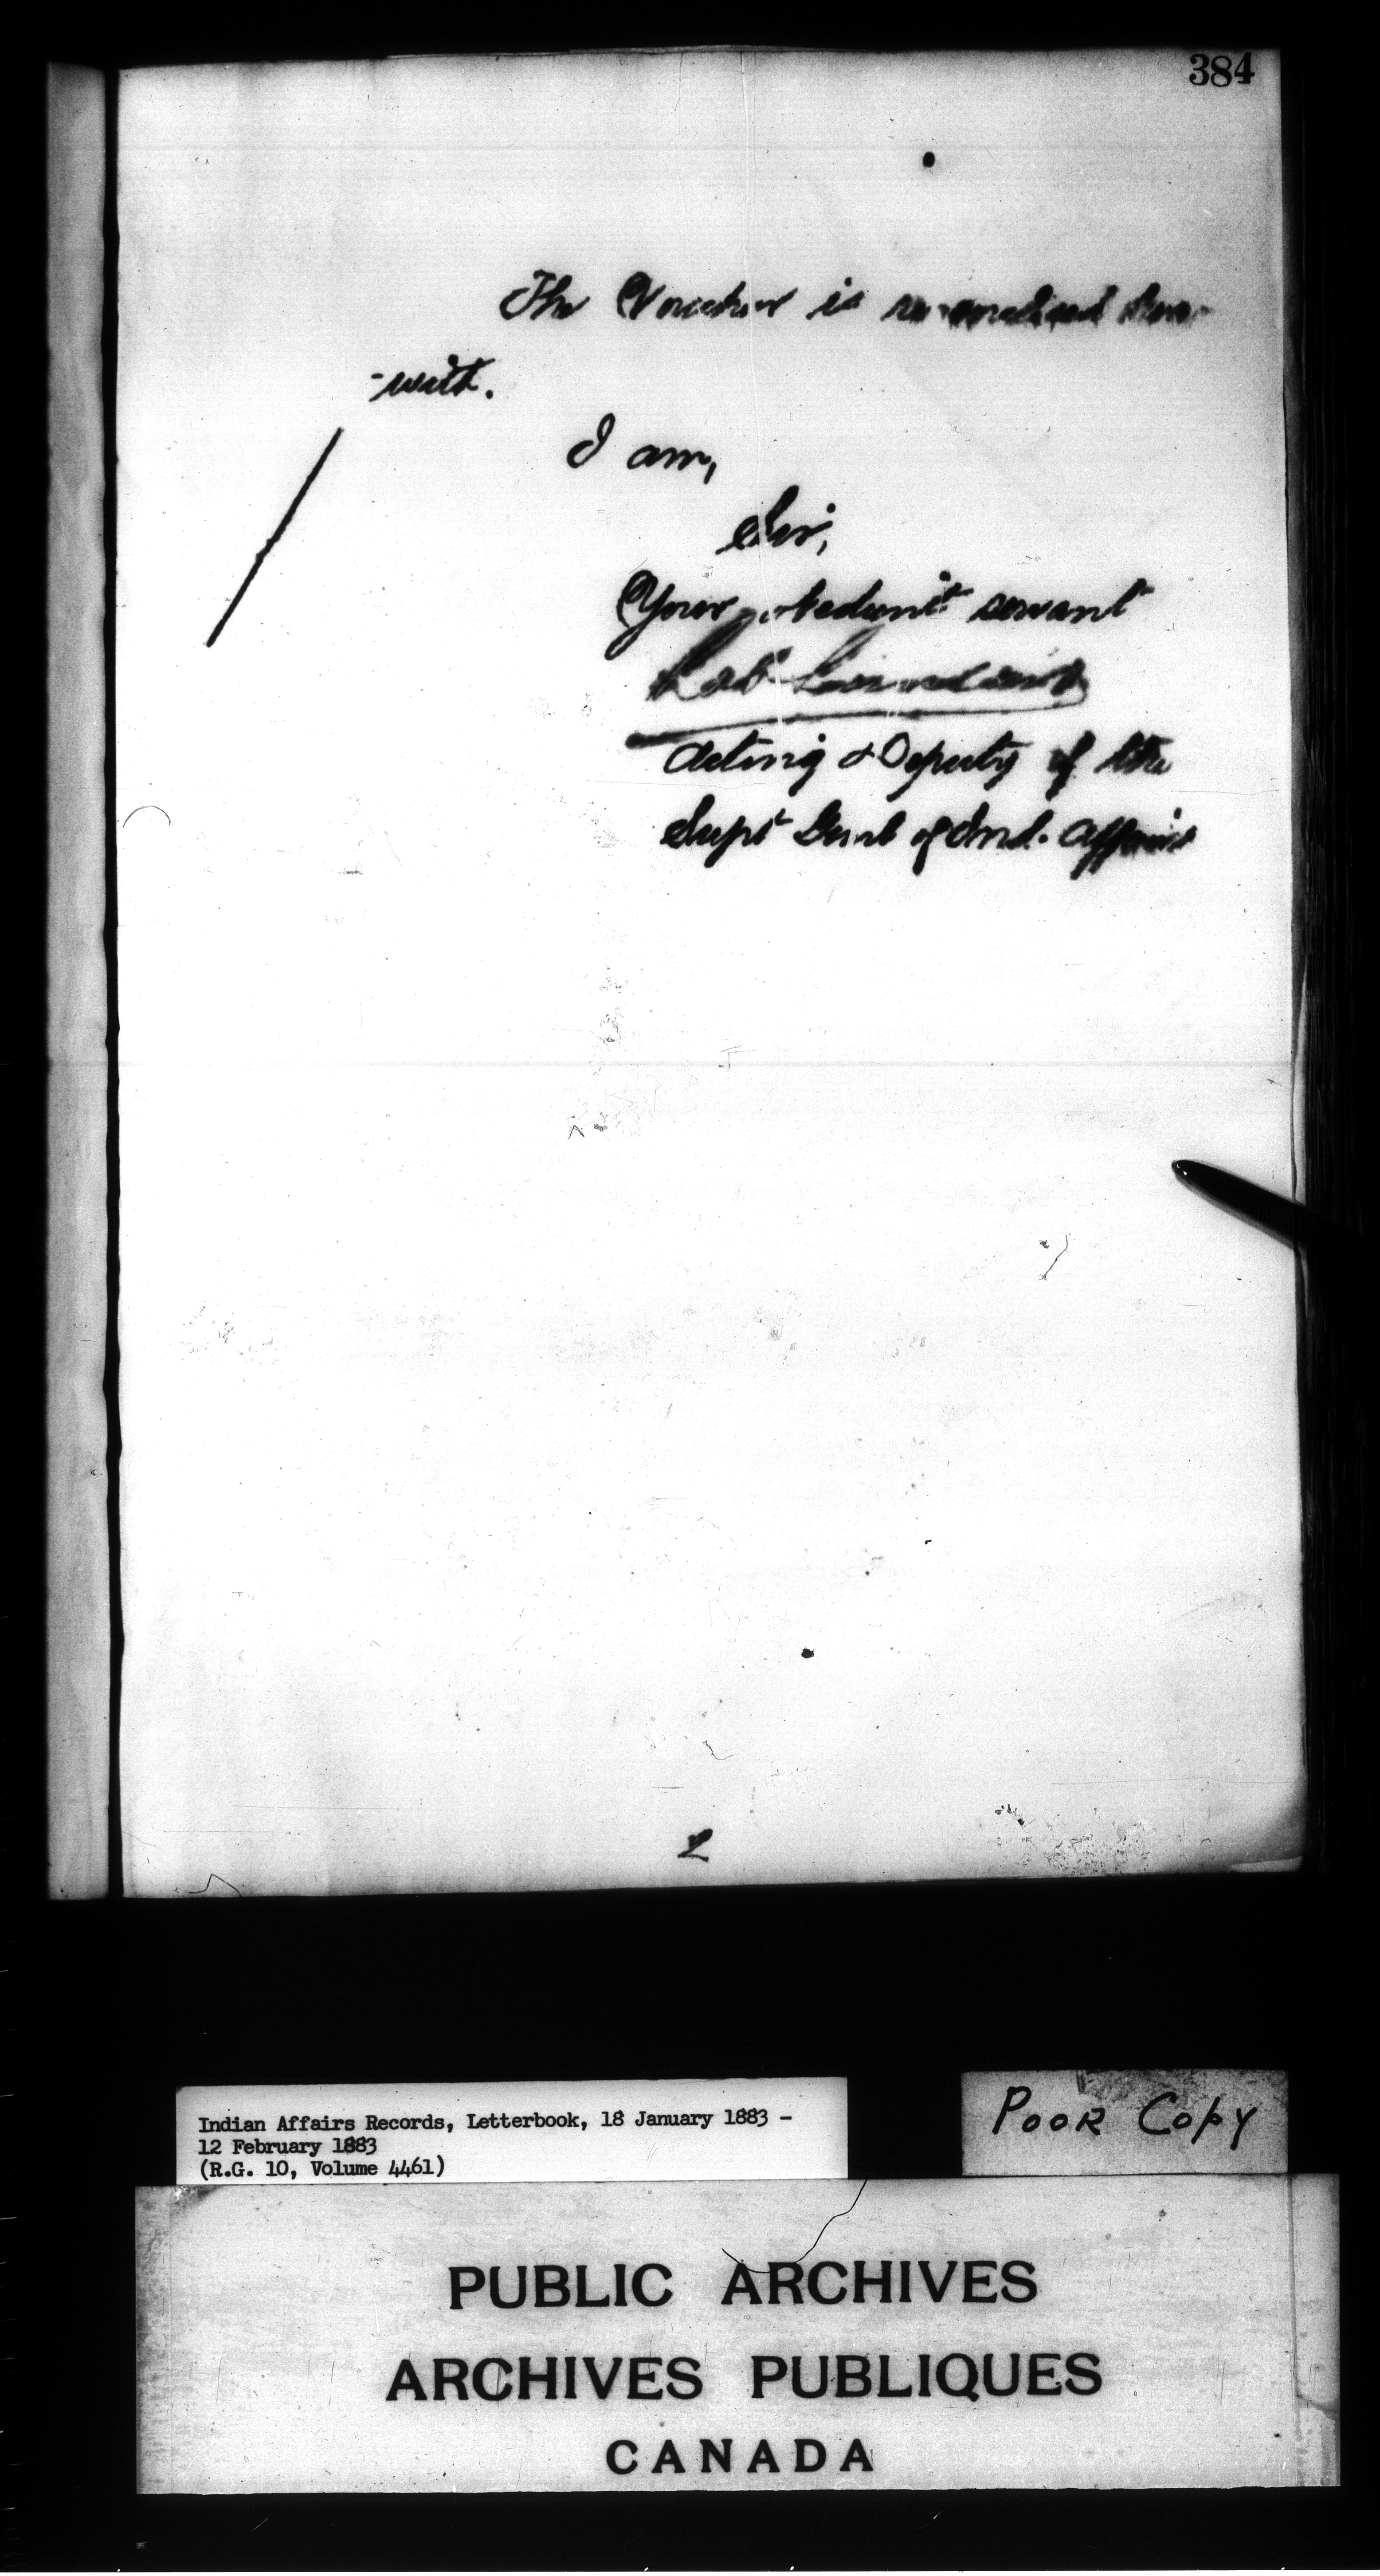 384
The Voucher is here
-with.
I am,
Sir,
Your obedient servant
Robt Sinclair
Acting Deputy of the
Supt Genl of Ind. Affairs
2
Indian Affairs Records, Letterbook, 18 January 1883 -
12 February 1883
(R.G. 10, Volume 4461)
POOR COPY
PUBLIC ARCHIVES
ARCHIVES PUBLIQUES
CANADA